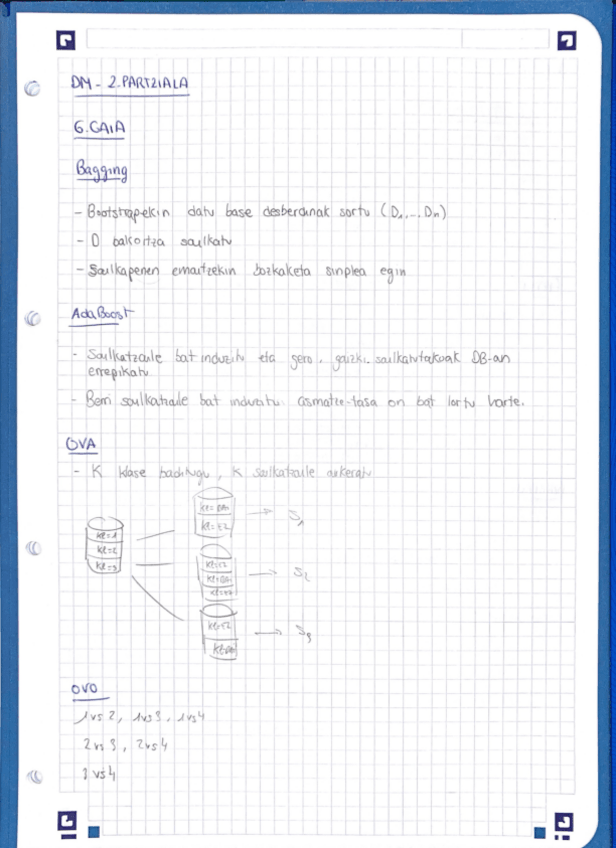 DM - 2.PARTZIALA
6.GAIA
Bagging
- Bootstrap-ekin datu base desberdinak sortu (D1,..., Dn)
- D bakoitza sailkatu
- Sailkapenen emaitzekin bozkaketa sinplea egin
AdaBoost
- Sailkatzaile bat induzitu eta gero, gaizki sailkatutakoak DB-an
errepikatu
- Berri sailkatzaile bat induzitu asmatze-tasa on bat lortu harte.
OVA
- K klase baditugu, K sailkatzaile aukeratu
Kl=1
Kl=2
Kl=3
Kl=BAI
Kl=EZ
→ S1
Kl=EZ
Kl=BAI
Kl=EZ
→ S2
Kl=EZ
Kl=BAI
→ S3
OVO
1 vs 2, 1 vs 3, 1 vs 4
2 vs 3, 2 vs 4
3 vs 4